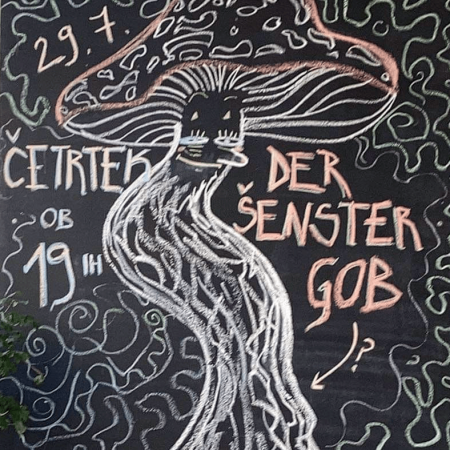 29.7.
ČETRTEK
OB
19 IH
DER
ŠENSTER
GOB
!?